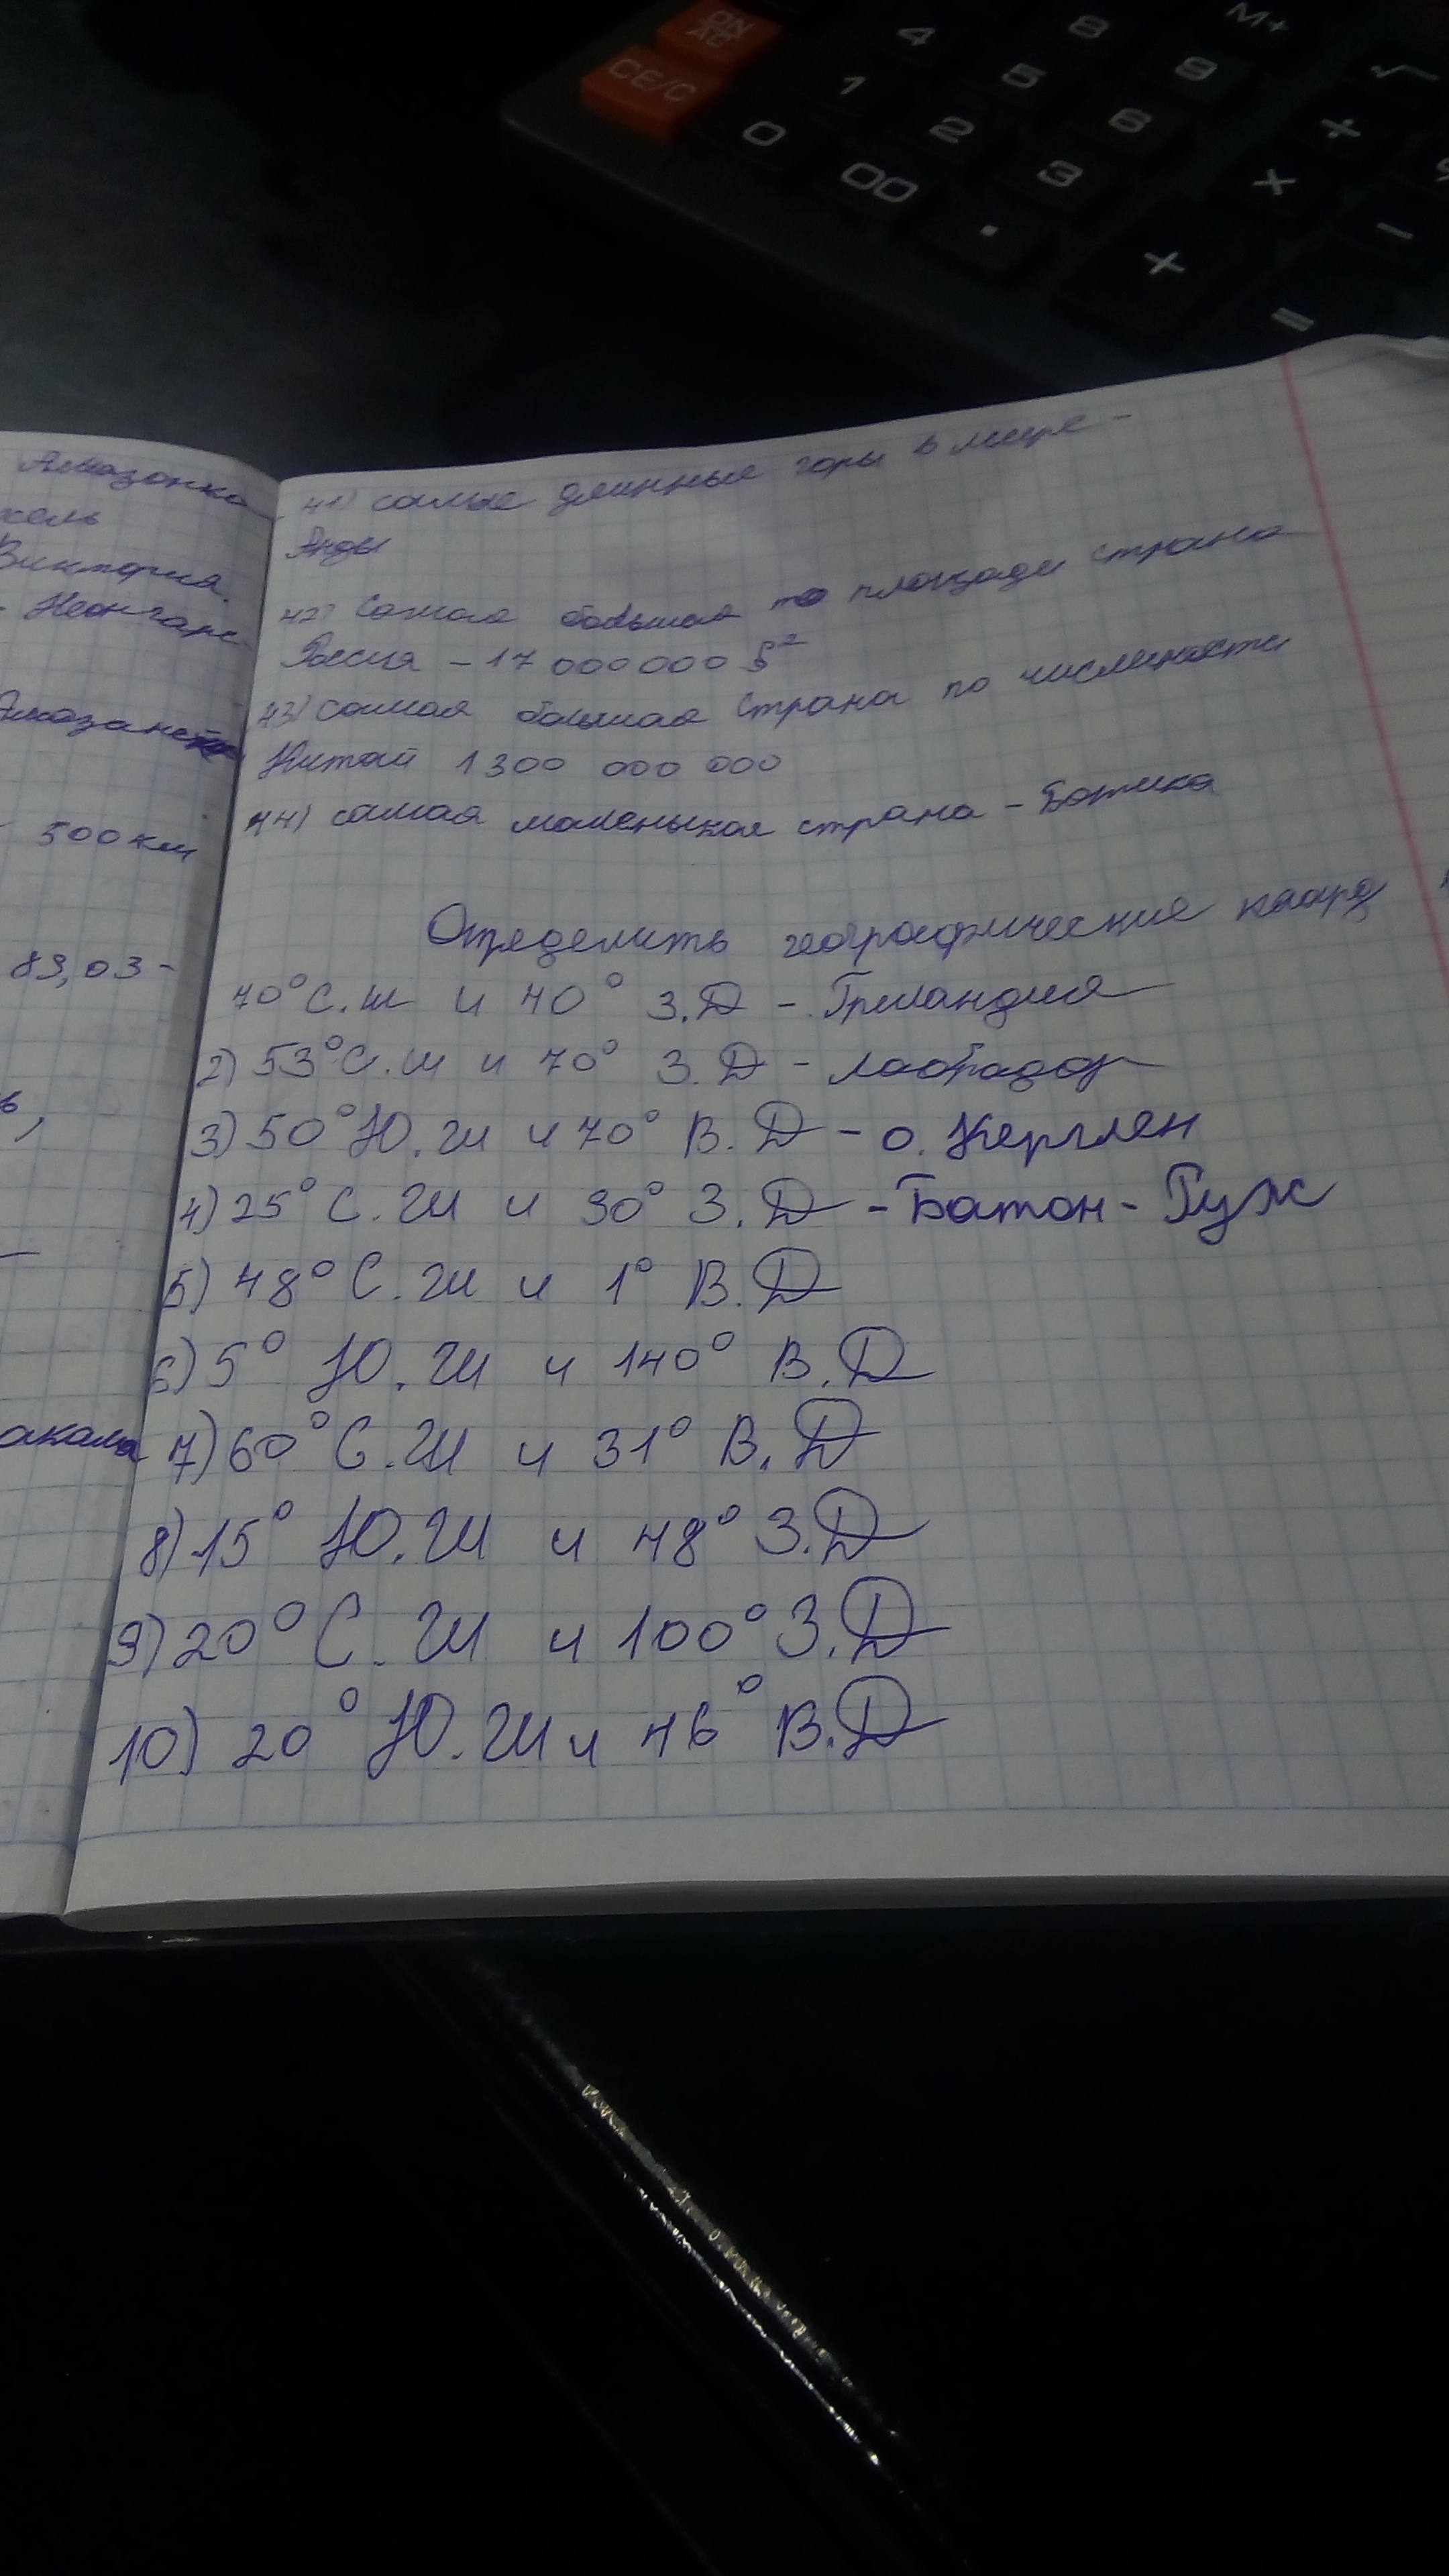 ON
AC
CE/C
4
8
M+
1
5
9
√
0
2
6
÷
00
3
×
.
+
−
=
Амазонка
Виктория.
500 км
83,03-
41) самые длинные горы в мире -
Анды
42) Самая большая по площади страна
Россия - 17 000 000 S²
43) самая большая страна по числености
Китай 1 300 000 000
44) самая маленькая страна -
Определить географические коорд
40° С.ш и 40° З.Д - Грнландия
2) 53° С.ш и 70° З.Д - лабрадор
3) 50° Ю.Ш и 70° В.Д - о. Керглен
4) 25° С.Ш и 30° З.Д - Батон-Руж
5) 48° С.Ш и 1° В.Д
6) 5° Ю.Ш и 140° В.Д
7) 60° С.Ш и 31° В.Д
8) 15° Ю.Ш и 48° З.Д
9) 20° С.Ш и 100° З.Д
10) 20° Ю.Ш и 46° В.Д